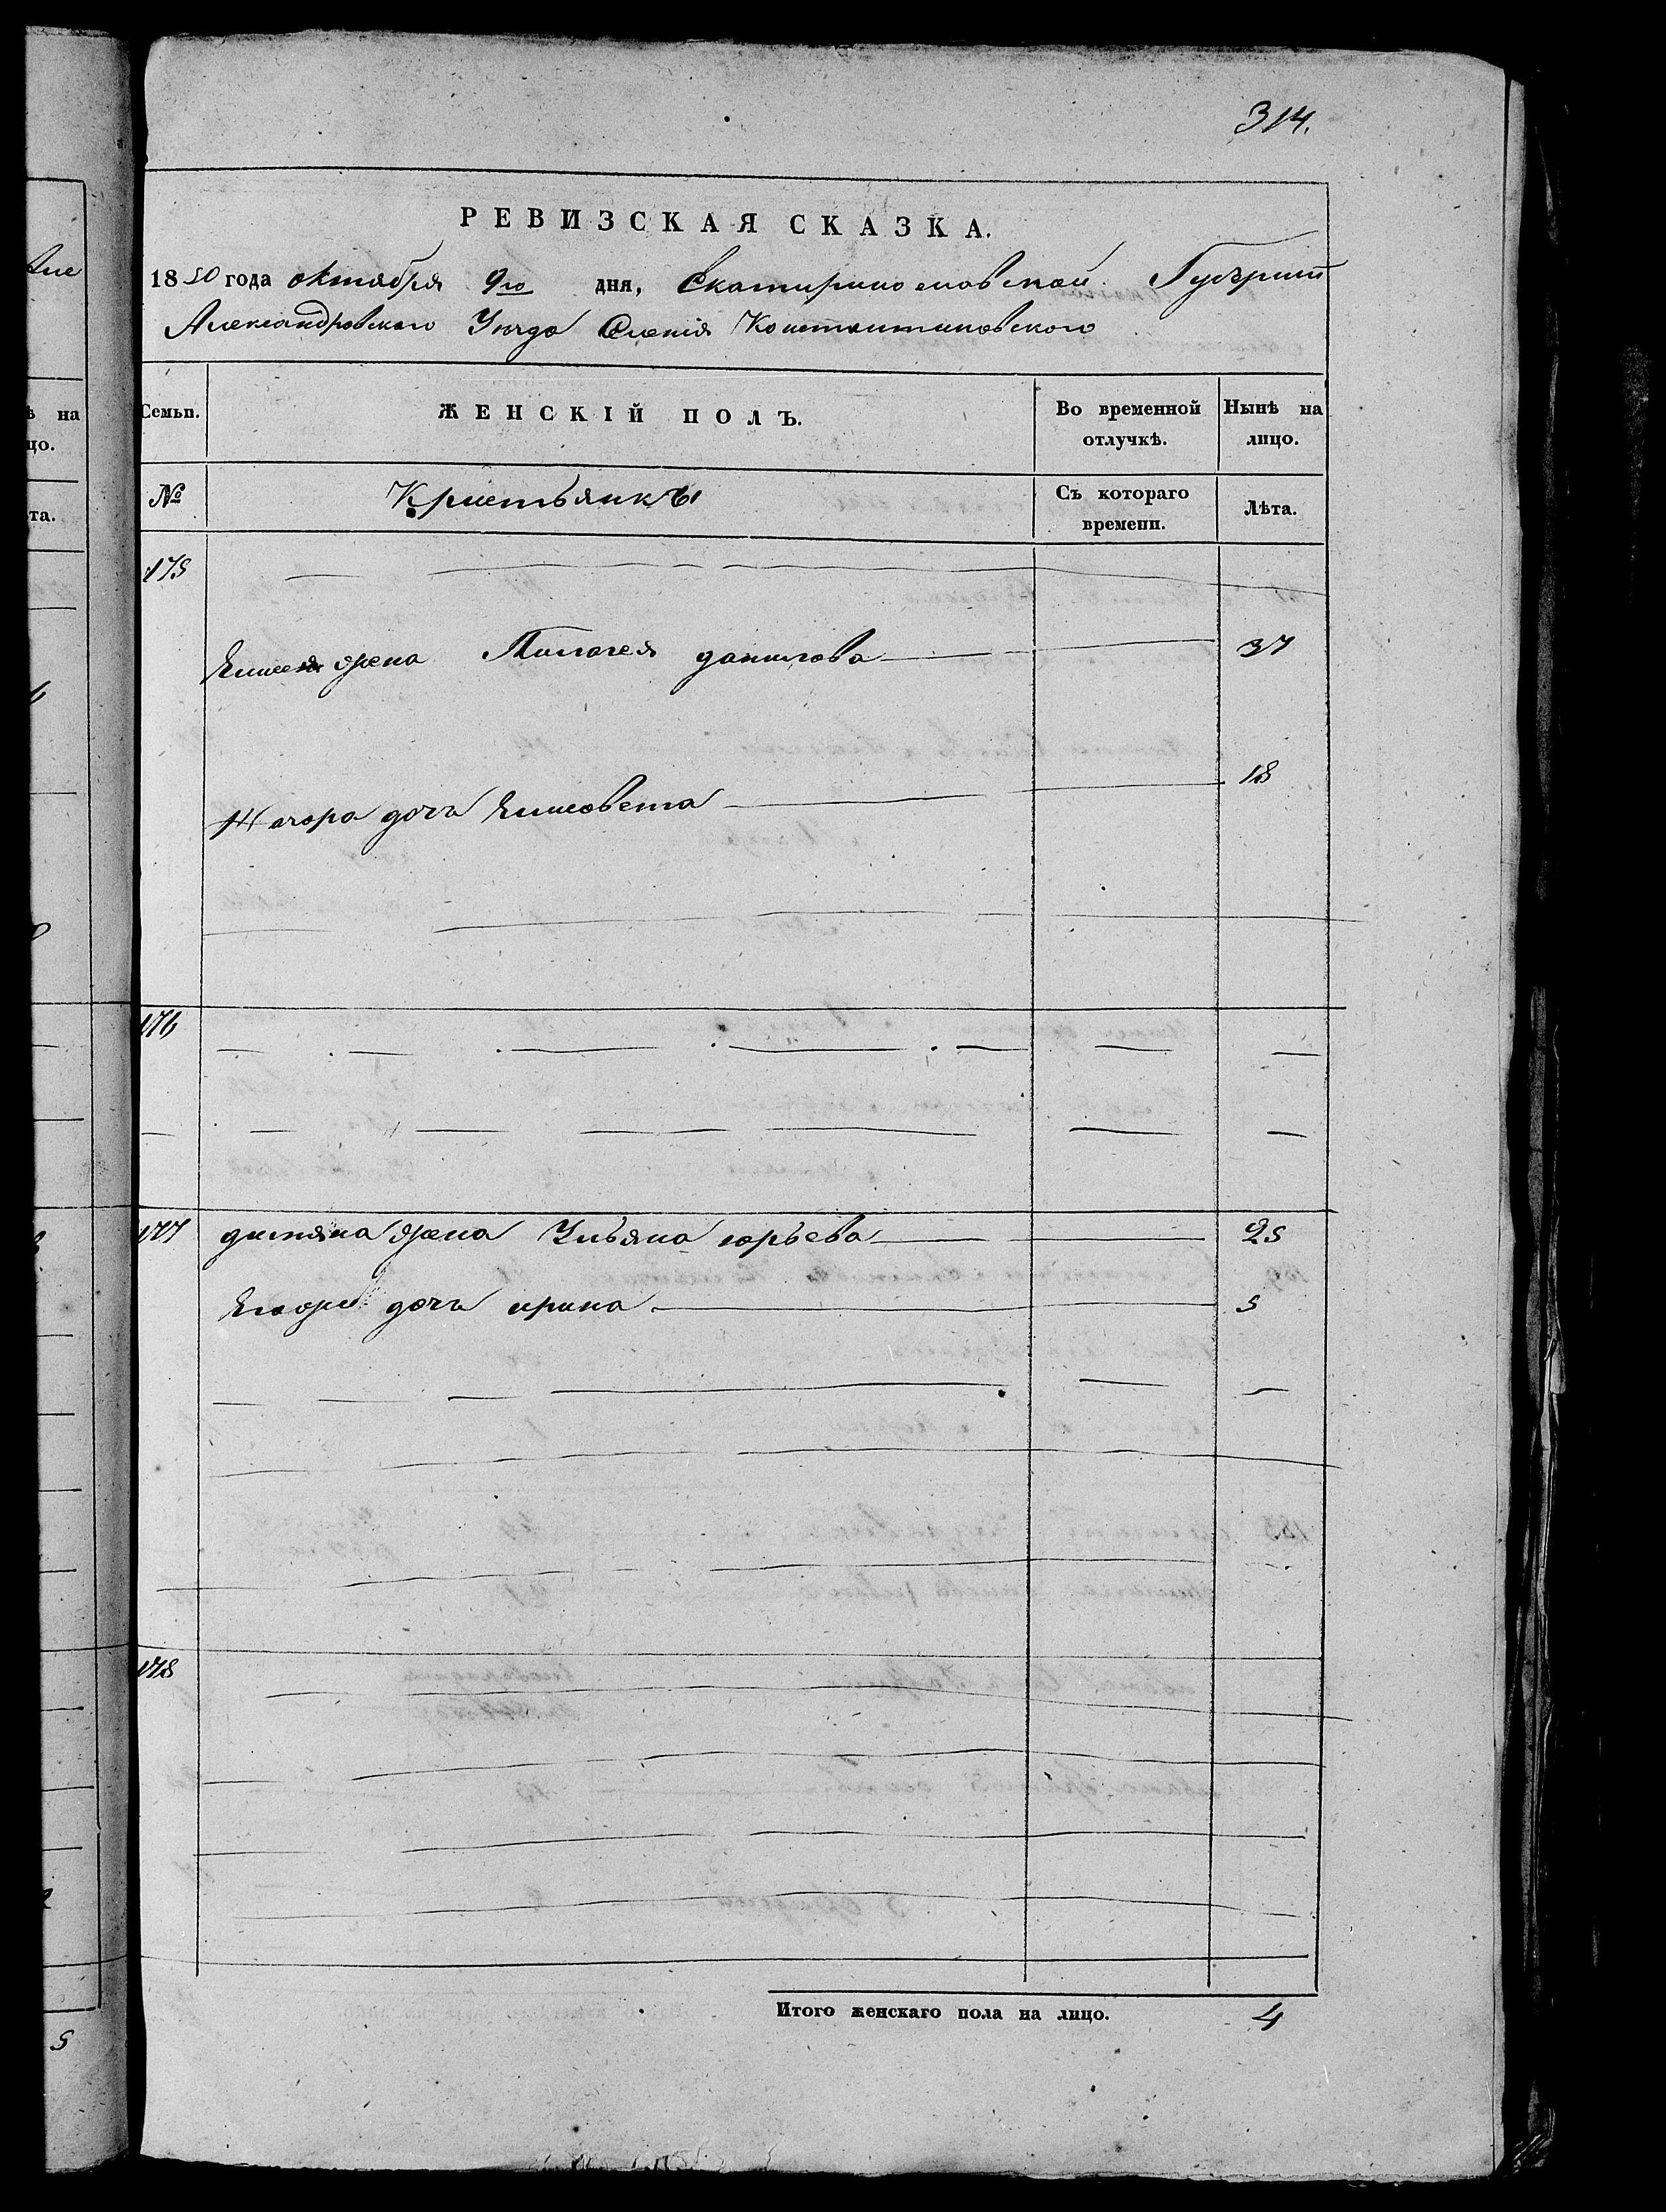 314.
РЕВИЗСКАЯ СКАЗКА.
1850 года октября 9го дня, Екатеринославской Губернии
Александровского Уезда Селения Константиновского
Семьи. ЖЕНСКІЙ ПОЛЪ. Во временной отлучкѣ. Нынѣ на лицо.
№ Крестьянкы Съ котораго времени. Лѣта.
175
жена Пилагея данилова 37
дочь Елисовета 18
176
177 жена Ульяна юрьева 25
дочь ирина 5
178
Итого женскаго пола на лицо. 4
ѣ на
цо.
та.
5